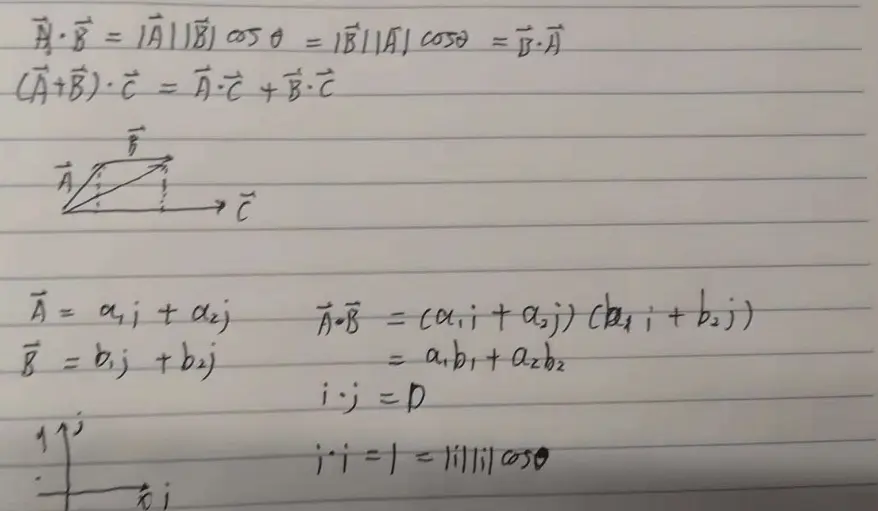 A⃗·B⃗ = |A⃗||B⃗| cosθ = |B⃗||A⃗| cosθ = B⃗·A⃗
(A⃗+B⃗)·C⃗ = A⃗·C⃗ + B⃗·C⃗
B⃗
A⃗
C⃗
A⃗ = a₁j + a₂j
A⃗·B⃗ = (a₁i + a₂j)(b₁i + b₂j)
B⃗ = b₁j + b₂j
= a₁b₁ + a₂b₂
i·j = 0
j
i·i = 1 = |i||i| cosθ
i